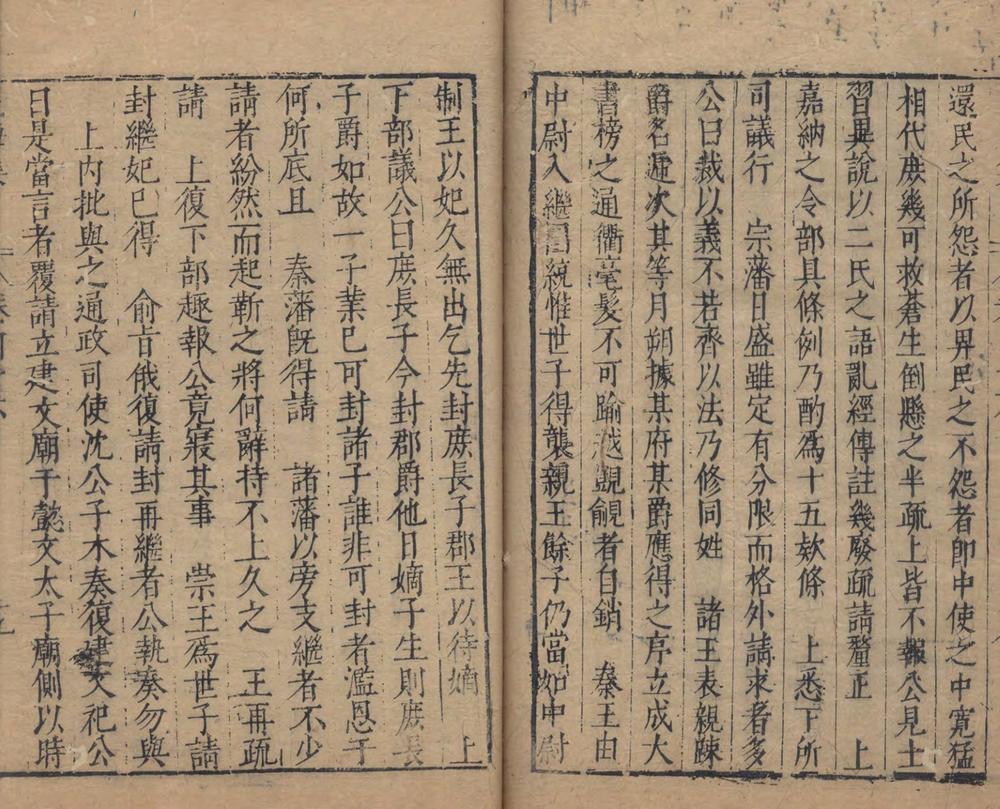 還民之所怨者以畀民之不怨者即中使之中寬猛
相代庻幾可救蒼生倒懸之半疏上皆不報公見士
習異說以二氏之語亂經傳註幾廢疏請釐正　上
嘉納之令部具條例乃酌爲十五欵條　上悉下所
司議行　宗藩日盛雖定有分限而格外請求者多
公曰裁以義不若齊以法乃修同姓　諸王表親疎
爵名遞次其等月朔據某府某爵應得之序立成大
書榜之通衢毫髮不可踰越覬覦者自銷　秦王由
中尉入繼國統惟世子得襲親王餘子仍當如中尉
制王以妃久無出乞先封庻長子郡王以待嫡　上
下部議公曰庻長子今封郡爵他日嫡子生則庻長
子爵如故一子業已可封諸子誰非可封者濫恩于
何所底且　秦藩旣得請　諸藩以旁支繼者不少
請者紛然而起靳之將何辭持不上久之　王再疏
請　上復下部趣報公竟寢其事　崇王爲世子請
封繼妃已得　俞旨俄復請封再繼者公執奏勿與
上內批與之通政司使沈公子木奏復建文祀公
曰是當言者覆請立建文廟于懿文太子廟側以時